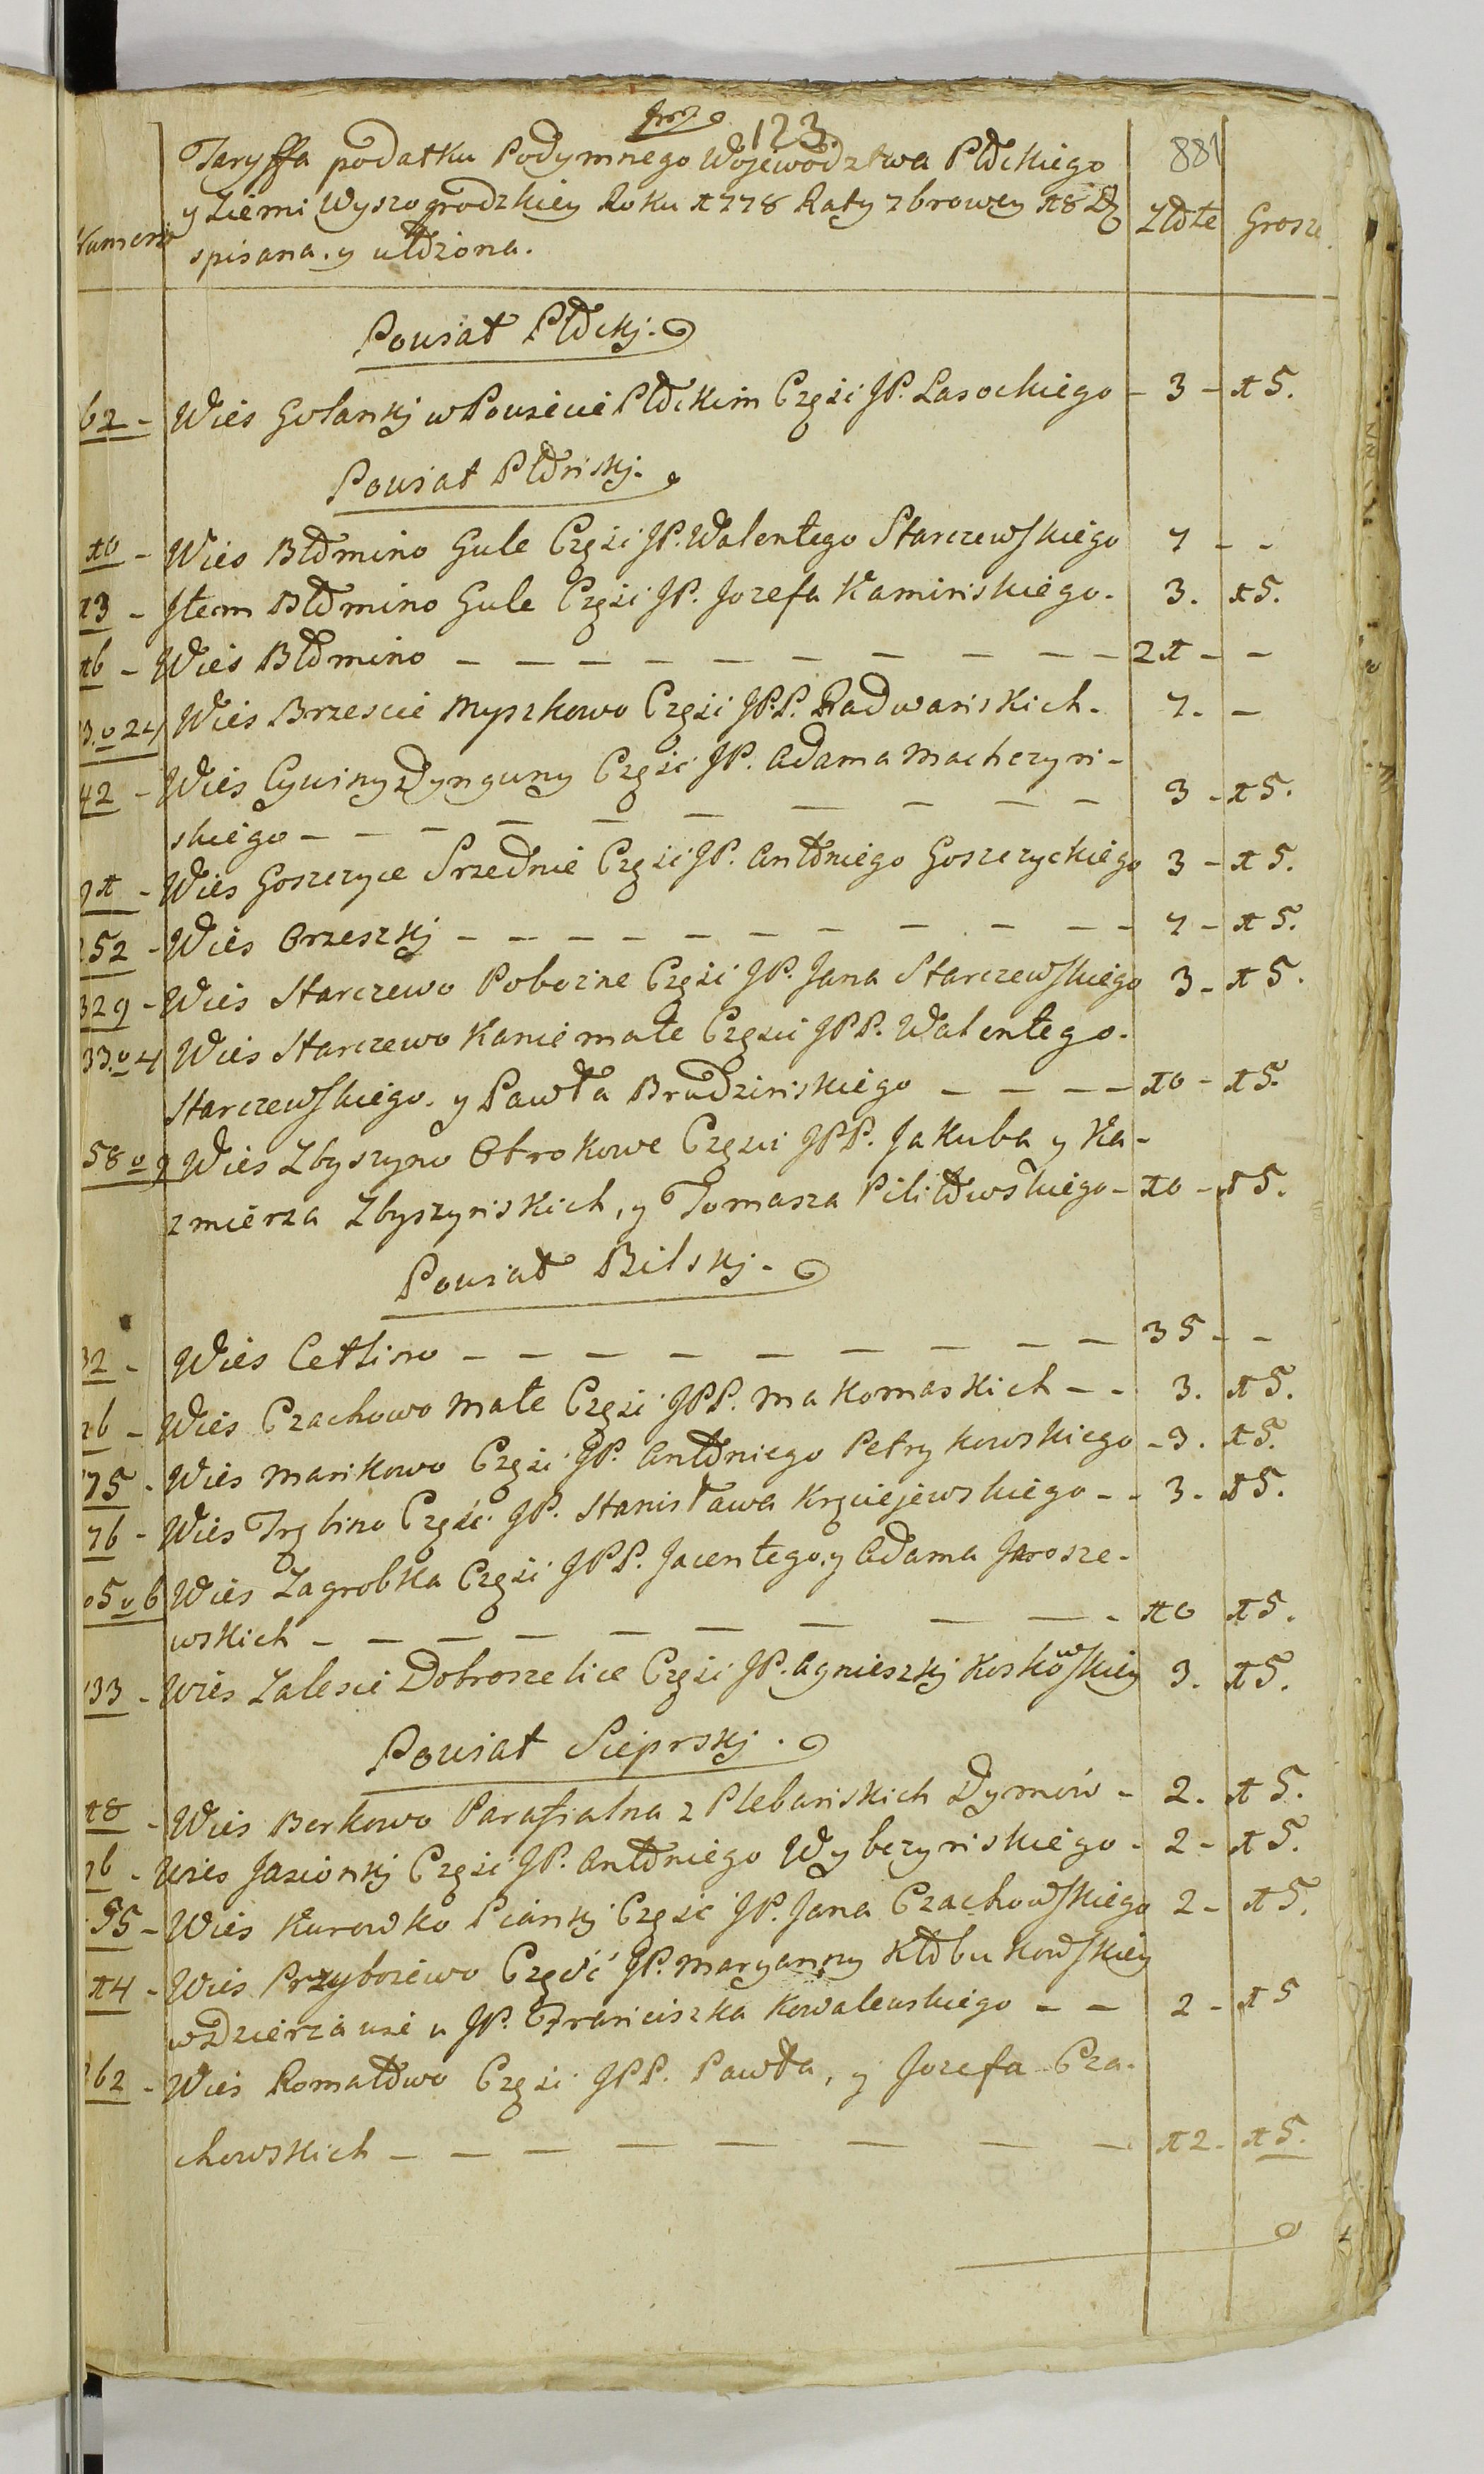 123.
881
Taryffa podatku Podymnego Wojewodztwa Płockiego
y Ziemi Wyszogrodzkiey Roku 1778 Raty 7browey 18 D
Numera spisana. y ułożona. Złote Grosze.
Powiat Płocky.
62 - Wies Golanky w Powiecie Płockim Częsć JP. Lasockiego - 3 - 15.
Powiat Płonsky.
10 - Wies Błomino Gule Częsć JP. Walentego Starczewskiego 7 - -
13 - Jtem Błomino Gule Częsć JP. Jozefa Kaminskiego. 3. 15.
16 - Wies Błomino - - - - - - - - - - 21 - -
23. o 24 Wies Brzescie Myszkowo Częsć JP.P. Radwanskich. 7. -
42 - Wies Cywiny Dynguny Częsć JP. Adama Macherzyn-
skiego - - - - - - - - - - 3 - 15.
71 - Wies Goszczyce Srzednie Częsć JP. Antoniego Goszczyckiego 3 - 15.
252 - Wies Orzeszky - - - - - - - - - - 7 - 15.
329 - Wies Starczewo Pobozne Częsć JP. Jana Starczewskiego 3 - 15.
33. o 4 Wies Starczewo Kaniemałe Częsci JPP. Walentego.
Starczewskiego. y Pawła Brudzinskiego - - - - 10 - 15.
58 o 9 Wies Zbyszyno Otrokowe Częsci JPP. Jakuba y Ka-
zmierza Zbyszynskich, y Tomasza Pilitowskiego - 10 - 15.
Powiat Bilsky.
32 - Wies Cetlino - - - - - - - - - 35 - -
26 - Wies Czachowo Małe Częsć JPP. Makomaskich - - 3. 15.
75 - Wies Mankowo Częsć JP. Antoniego Petrykowskiego - 3. 15.
76 - Wies Trębino Częsć JP. Stanisława Kręciejewskiego - - 3. 15.
05 o 6 Wies Zagrobka Częsć JPP. Jacentego, y Adama Jarosze-
wskich - - - - - - - - - 10 15.
133 - Wies Zalesie Dobroszelice Częsć JP. Agnieszky Koskowskiey 3. 15.
Powiat Sieprsky.
18 - Wies Borkowo Parafialna z Plebanskich Dymów - 2. 15.
26 - Wies Jasionky Częsć JP. Antoniego Wybczynskiego - 2 - 15.
95 - Wies Kurowko Pianky Częsć JP. Jana Czachowskiego 2 - 15.
14 - Wies Przyborewo Częsć JP. Maryanny Kłobukowskiey
w Dzierzawie u JP. Franciszka Kowalewskiego - - 2 - 15
162 - Wies Romatowo Częsć JPP. Pawła, y Jozefa Cza-
chowskich - - - - - - - - 12 - 15.